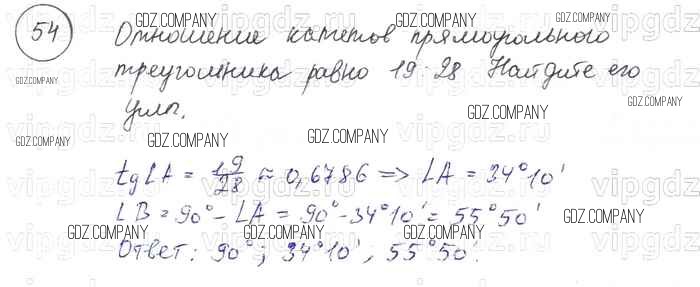 54
Отношение катетов прямоугольного
треугольника равно 19:28 Найдите его
углы.
tg∠A = 19/28 ≈ 0,6786 => ∠A = 34°10'
∠B = 90° - ∠A = 90° - 34°10' = 55°50'
Ответ: 90°; 34°10', 55°50'.
GDZ.COMPANY
vipgdz.ru